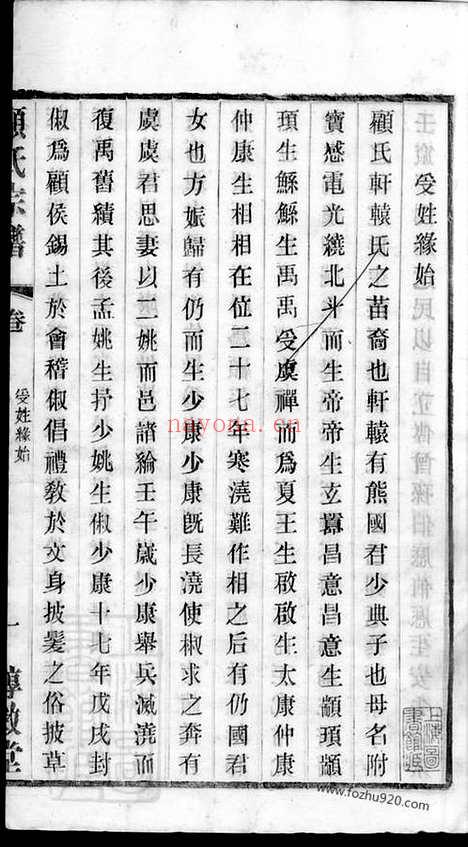 受姓緣始
顧氏軒轅氏之苗裔也軒轅有熊國君少典子也母名附
寶感電光繞北斗而生帝帝生玄囂昌意昌意生顓頊顓
頊生鯀鯀生禹禹受虞禪而爲夏王生啟啟生太康仲康
仲康生相相在位二十七年寒澆難作相之后有仍國君
女也方娠歸有仍而生少康少康旣長澆使椒求之奔有
虞虞君思妻以二姚而邑諸綸壬午歲少康舉兵滅澆而
復禹舊績其後孟姚生抒少姚生俶少康十七年戊戌封
俶爲顧侯錫土於會稽俶倡禮敎於文身披髮之俗披草
顧氏宗譜
卷
受姓緣始
一
敘堂
上海圖
書館藏
nayona.cn
www.fozhu920.com